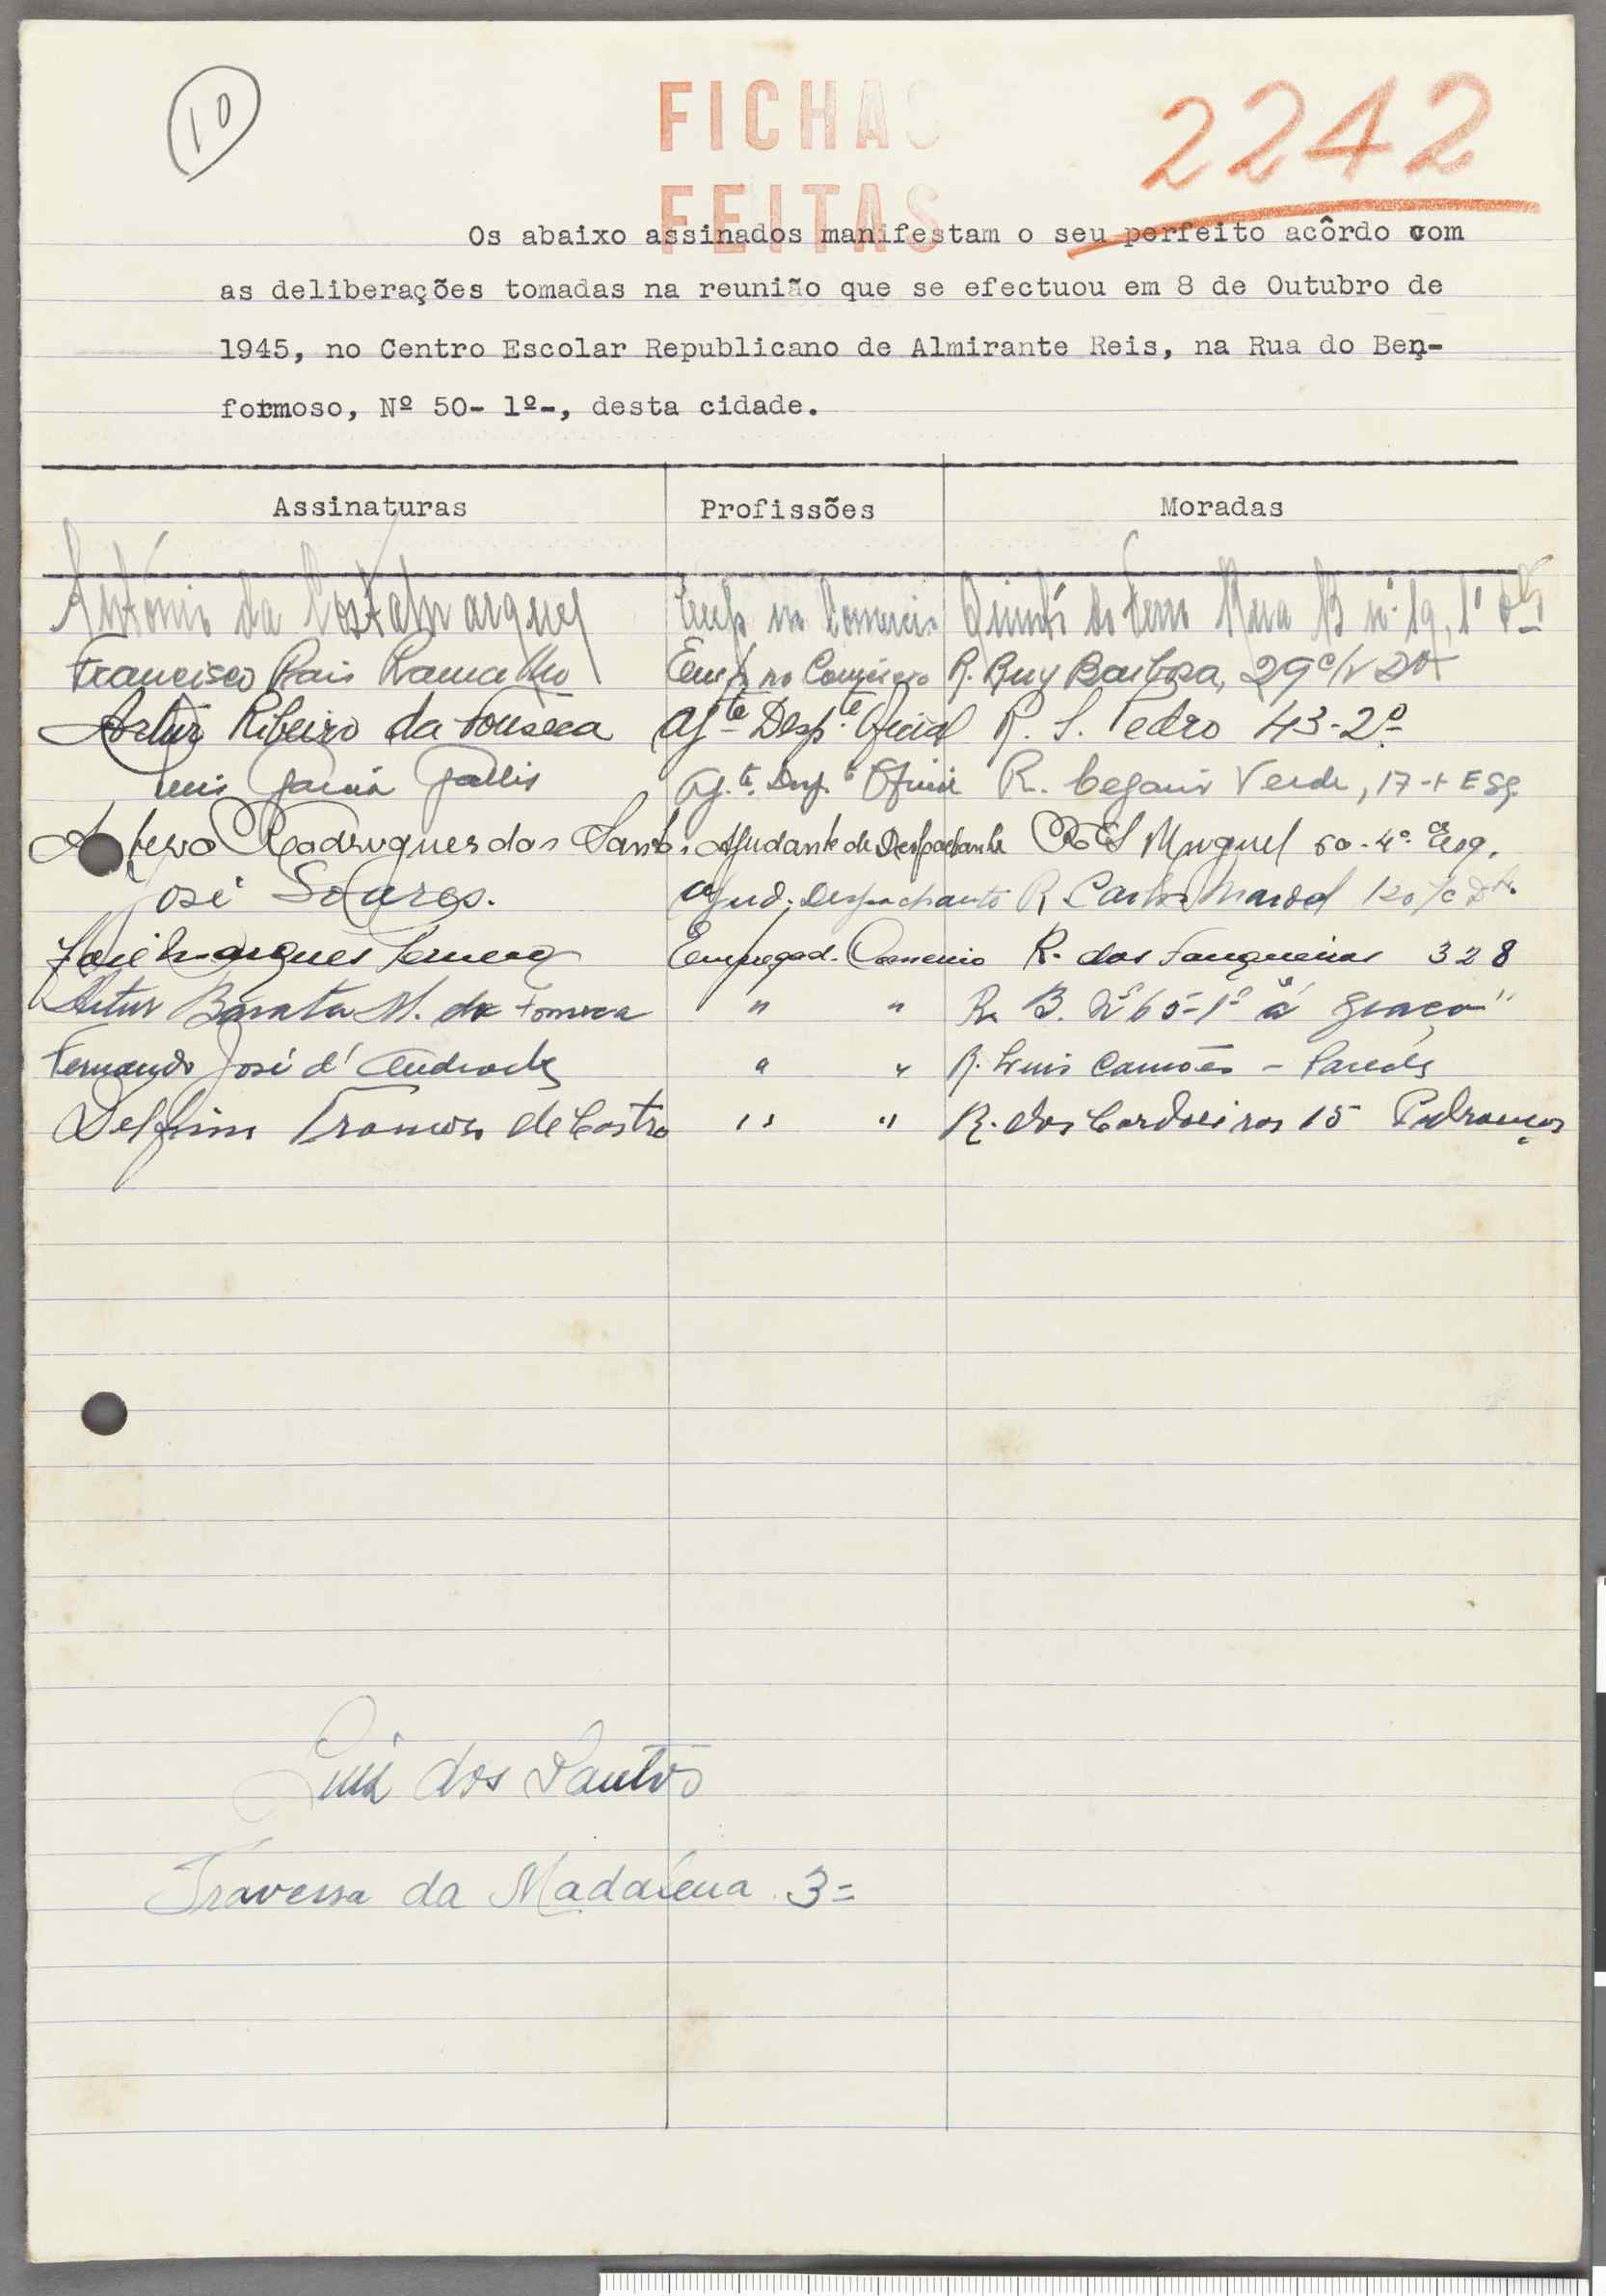 10
FICHAS
FEITAS
2242
Os abaixo assinados manifestam o seu perfeito acôrdo com
as deliberações tomadas na reunião que se efectuou em 8 de Outubro de
1945, no Centro Escolar Republicano de Almirante Reis, na Rua do Ben-
formoso, Nº 50- 1º-, desta cidade.
Assinaturas Profissões Moradas
António da Costa Marques Emp no Comercio Quinta do Ferro Rua B nº 19, 1º
Francisco Pais Ramalho Emp. no Comércio R. Ruy Barbosa, 29 c/v Dt
Artur Ribeiro da Fonseca Ajte Despte Oficial R. S. Pedro 43-2º
Luis Garcia Ajte. Despte Oficial R. Verde, 17-1 Esq.
Antero Rodrigues dos Santos Ajudante de Despachante R. S. Miguel 60-4º Esq.
José Soares. Ajud. Despachante R. Carlos Mardel 120 r/c Dto
José Marques Empregad. Comercio R. dos Fanqueiros 328
Artur Barata M. da Fonseca " " R. B. Nº 65-1º "á Graça"
Fernando José d'Andrade " " R. Luis Camões - Parede
Delfim Ramos de Castro " " R. dos Cordoeiros 15 Pedrouços
Luis dos Santos
Travessa da Madalena 3=